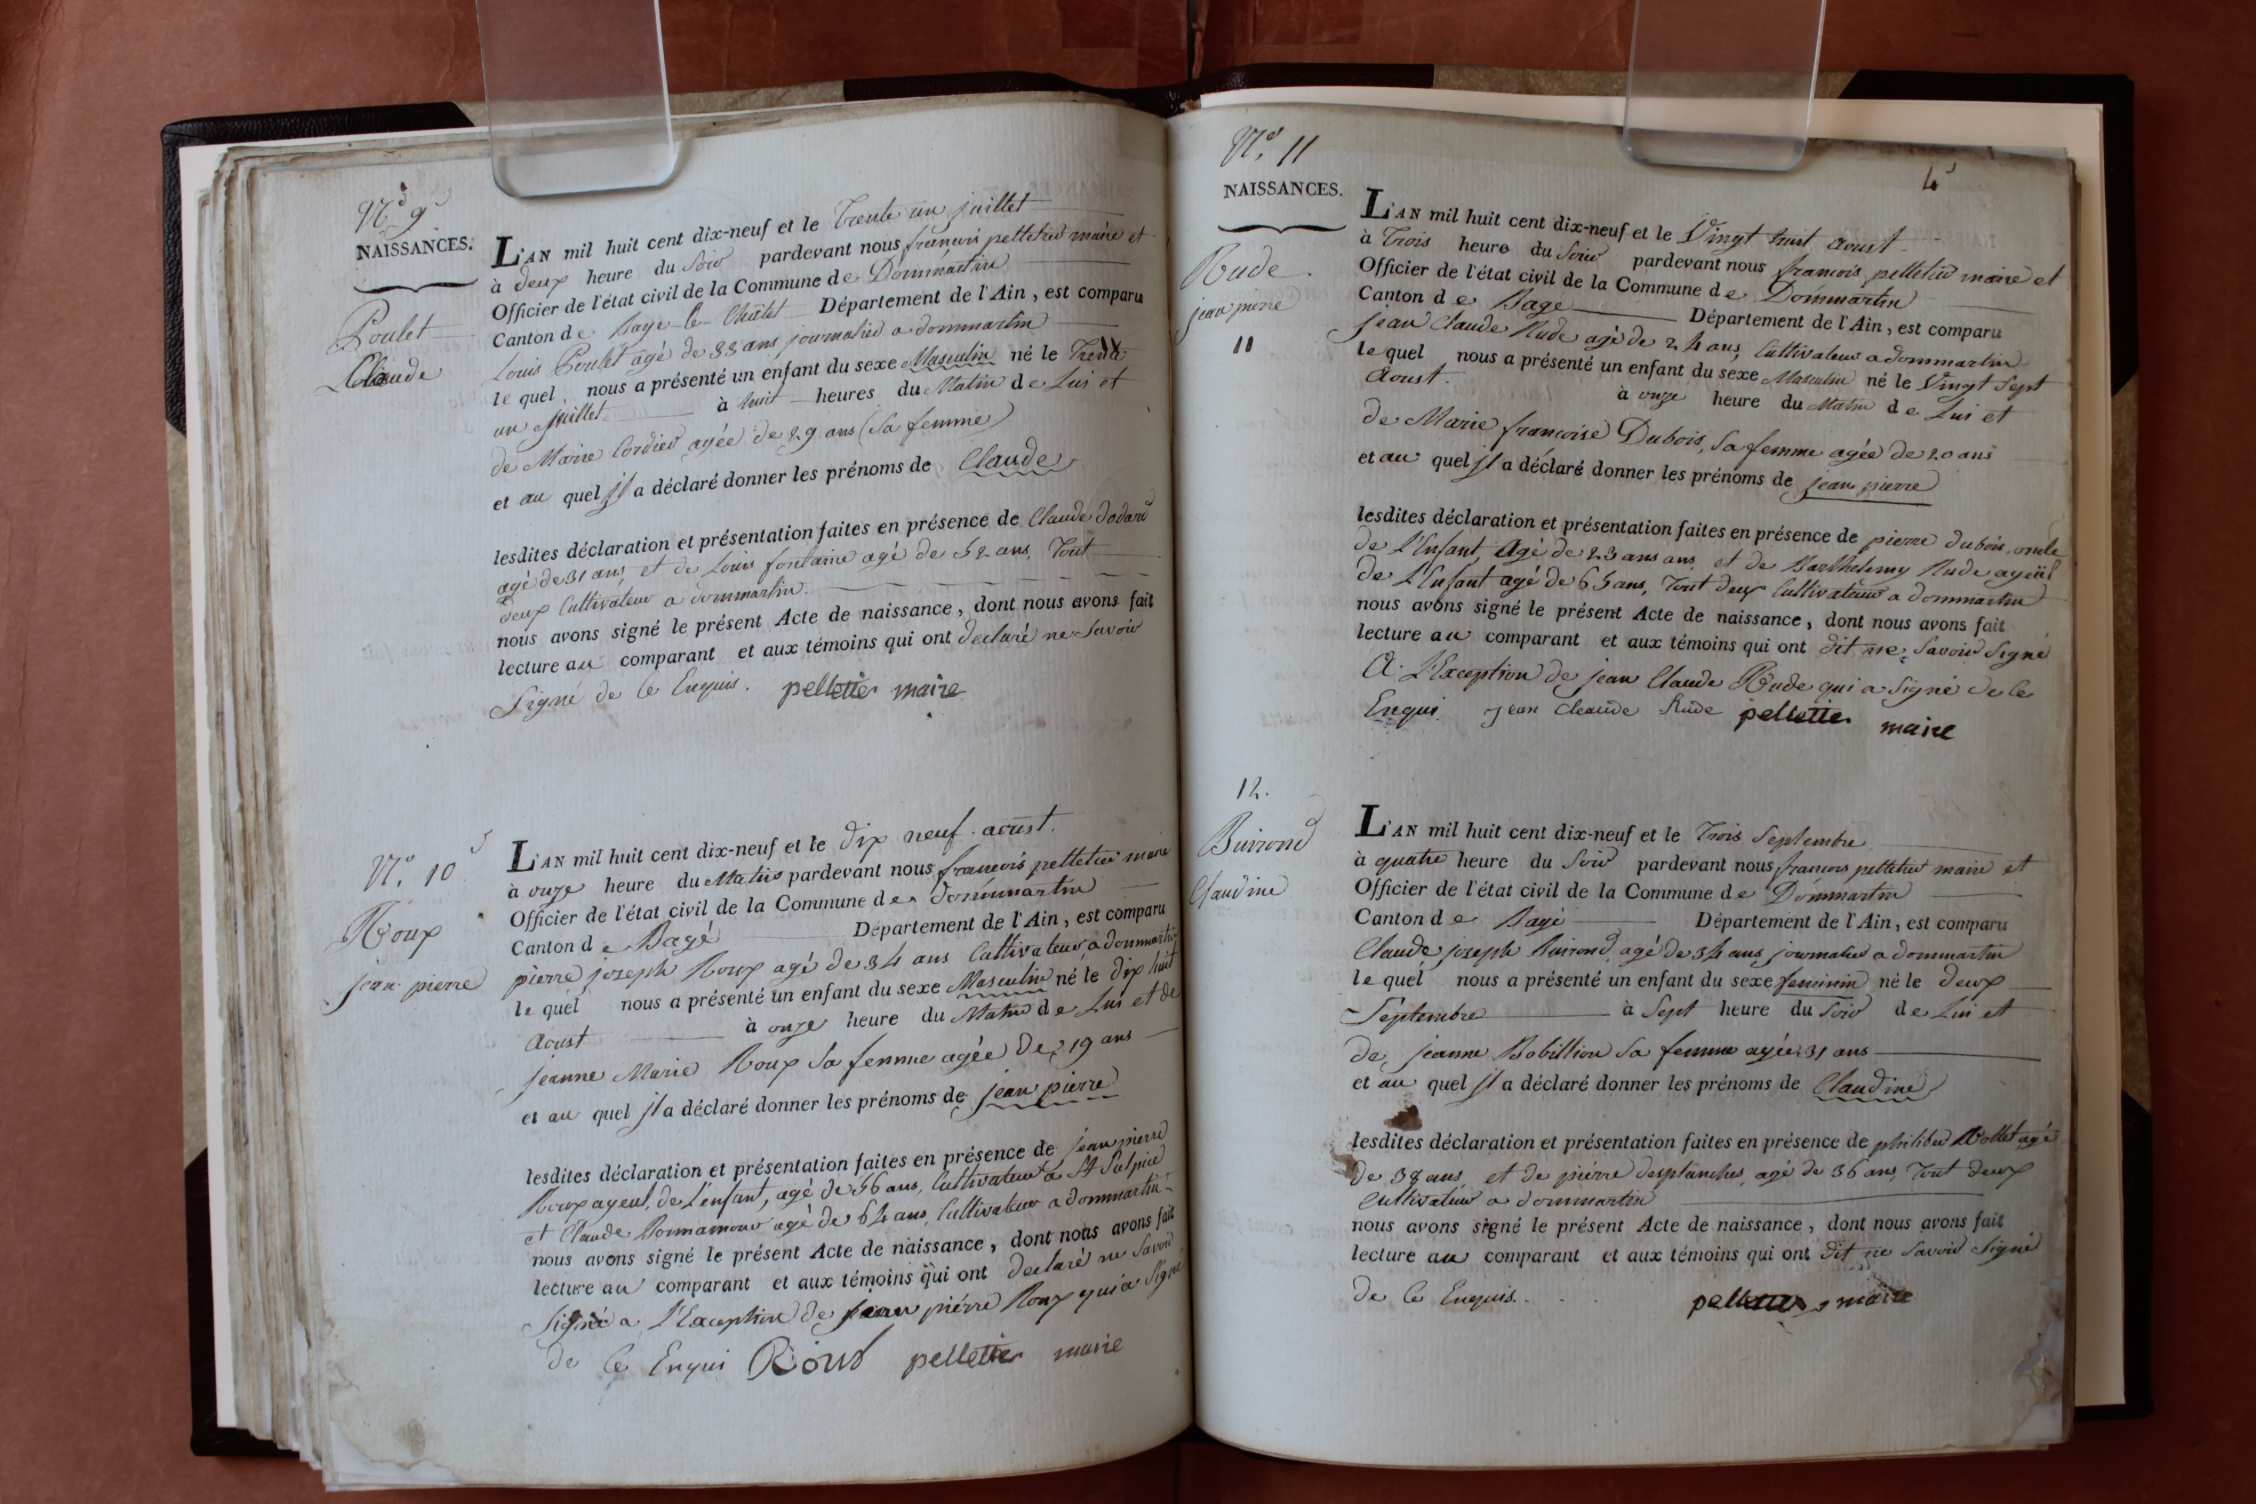 N.o 9
NAISSANCES.
Poulet
Claude
L'AN mil huit cent dix-neuf et le Trente un juillet
à deux heure du Soir pardevant nous françois pelletier maire et
Officier de l'état civil de la Commune de Dommartin
Canton de Bagé-le-Châtel Département de l'Ain, est comparu
Louis Poulet agé de 33 ans journalier a dommartin
le quel nous a présenté un enfant du sexe Masculin né le Trente
un juillet à huit heures du Matin de Lui et
de Marie Cordier agée de 29 ans (Sa femme)
et au quel jl a déclaré donner les prénoms de Claude
lesdites déclaration et présentation faites en présence de Claude dodard
agé de 31 ans et de Louis fontaine agé de 52 ans, Tout
deux Cultivateur a dommartin.
nous avons signé le présent Acte de naissance, dont nous avons fait
lecture au comparant et aux témoins qui ont declaré ne Savoir
Signé de ce Enquis. pelletier maire
N.o 10
Roux
jean pierre
L'AN mil huit cent dix-neuf et le dix neuf aoust.
à onze heure du Matin pardevant nous françois pelletier maire
Officier de l'état civil de la Commune de dommartin
Canton de Bagé Département de l'Ain, est comparu
pierre joseph Roux agé de 34 ans Cultivateur a dommartin
le quel nous a présenté un enfant du sexe Masculin né le dix huit
Aoust à onze heure du Matin de Lui et de
jeanne Marie Roux Sa femme agée De 19 ans
et au quel jl a déclaré donner les prénoms de jean pierre
lesdites déclaration et présentation faites en présence de jean pierre
Roux ayeul de L'enfant, agé de 56 ans, Cultivateur a St Sulpice
et Claude Bonnamour agé de 64 ans, Cultivateur a dommartin
nous avons signé le présent Acte de naissance, dont nous avons fait
lecture au comparant et aux témoins qui ont declaré ne Savoir
Signé a L'Exception de jean piérre Roux qui a Signé
de Ce Enqui Roux pelletier maire
N.o 11
4
NAISSANCES.
Rude
jean pierre
11
L'AN mil huit cent dix-neuf et le Vingt huit Aoust
à Trois heure du Soir pardevant nous francois pelletier maire et
Officier de l'état civil de la Commune de Dommartin
Canton de Bagé Département de l'Ain, est comparu
jean Claude Rude agé de 24 ans, Cultivateur a dommartin
le quel nous a présenté un enfant du sexe Masculin né le Vingt Sept
Aoust. à onze heure du Matin de Lui et
de Marie françoise Dubois, Sa femme agée de 20 ans
et au quel jl a déclaré donner les prénoms de jean pierre
lesdites déclaration et présentation faites en présence de pierre dubois, oncle
de L'Enfant, Agé de 23 ans ans et de Barthelemy Rude ayeul
de L'Enfant agé de 65 ans, Tout deux Cultivateur a dommartin
nous avons signé le présent Acte de naissance, dont nous avons fait
lecture au comparant et aux témoins qui ont dit ne Savoir Signé
A L'Exception de jean Claude Rude qui a Signé de Ce
Enqui. jean Cleaude Rude pelletier maire
12.
Buirond
Claudine
L'AN mil huit cent dix-neuf et le Trois Septembre
à quatre heure du Soir pardevant nous francois pelletier maire et
Officier de l'état civil de la Commune de Dommartin
Canton de Bagé Département de l'Ain, est comparu
Claude joseph Buirond, agé de 34 ans journalier a dommartin
le quel nous a présenté un enfant du sexe feminin né le deux
Septembre à Sept heure du Soir de Lui et
de jeanne Bobillion Sa femme agée 31 ans
et au quel jl a déclaré donner les prénoms de Claudine
lesdites déclaration et présentation faites en présence de philiber Rollet agé
de 38 ans, et de pierre desplanches, agé de 36 ans, Tout deux
Cultivateur a dommartin
nous avons signé le présent Acte de naissance, dont nous avons fait
lecture au comparant et aux témoins qui ont dit ne Savoir Signé
de Ce Enquis. pelletier maire